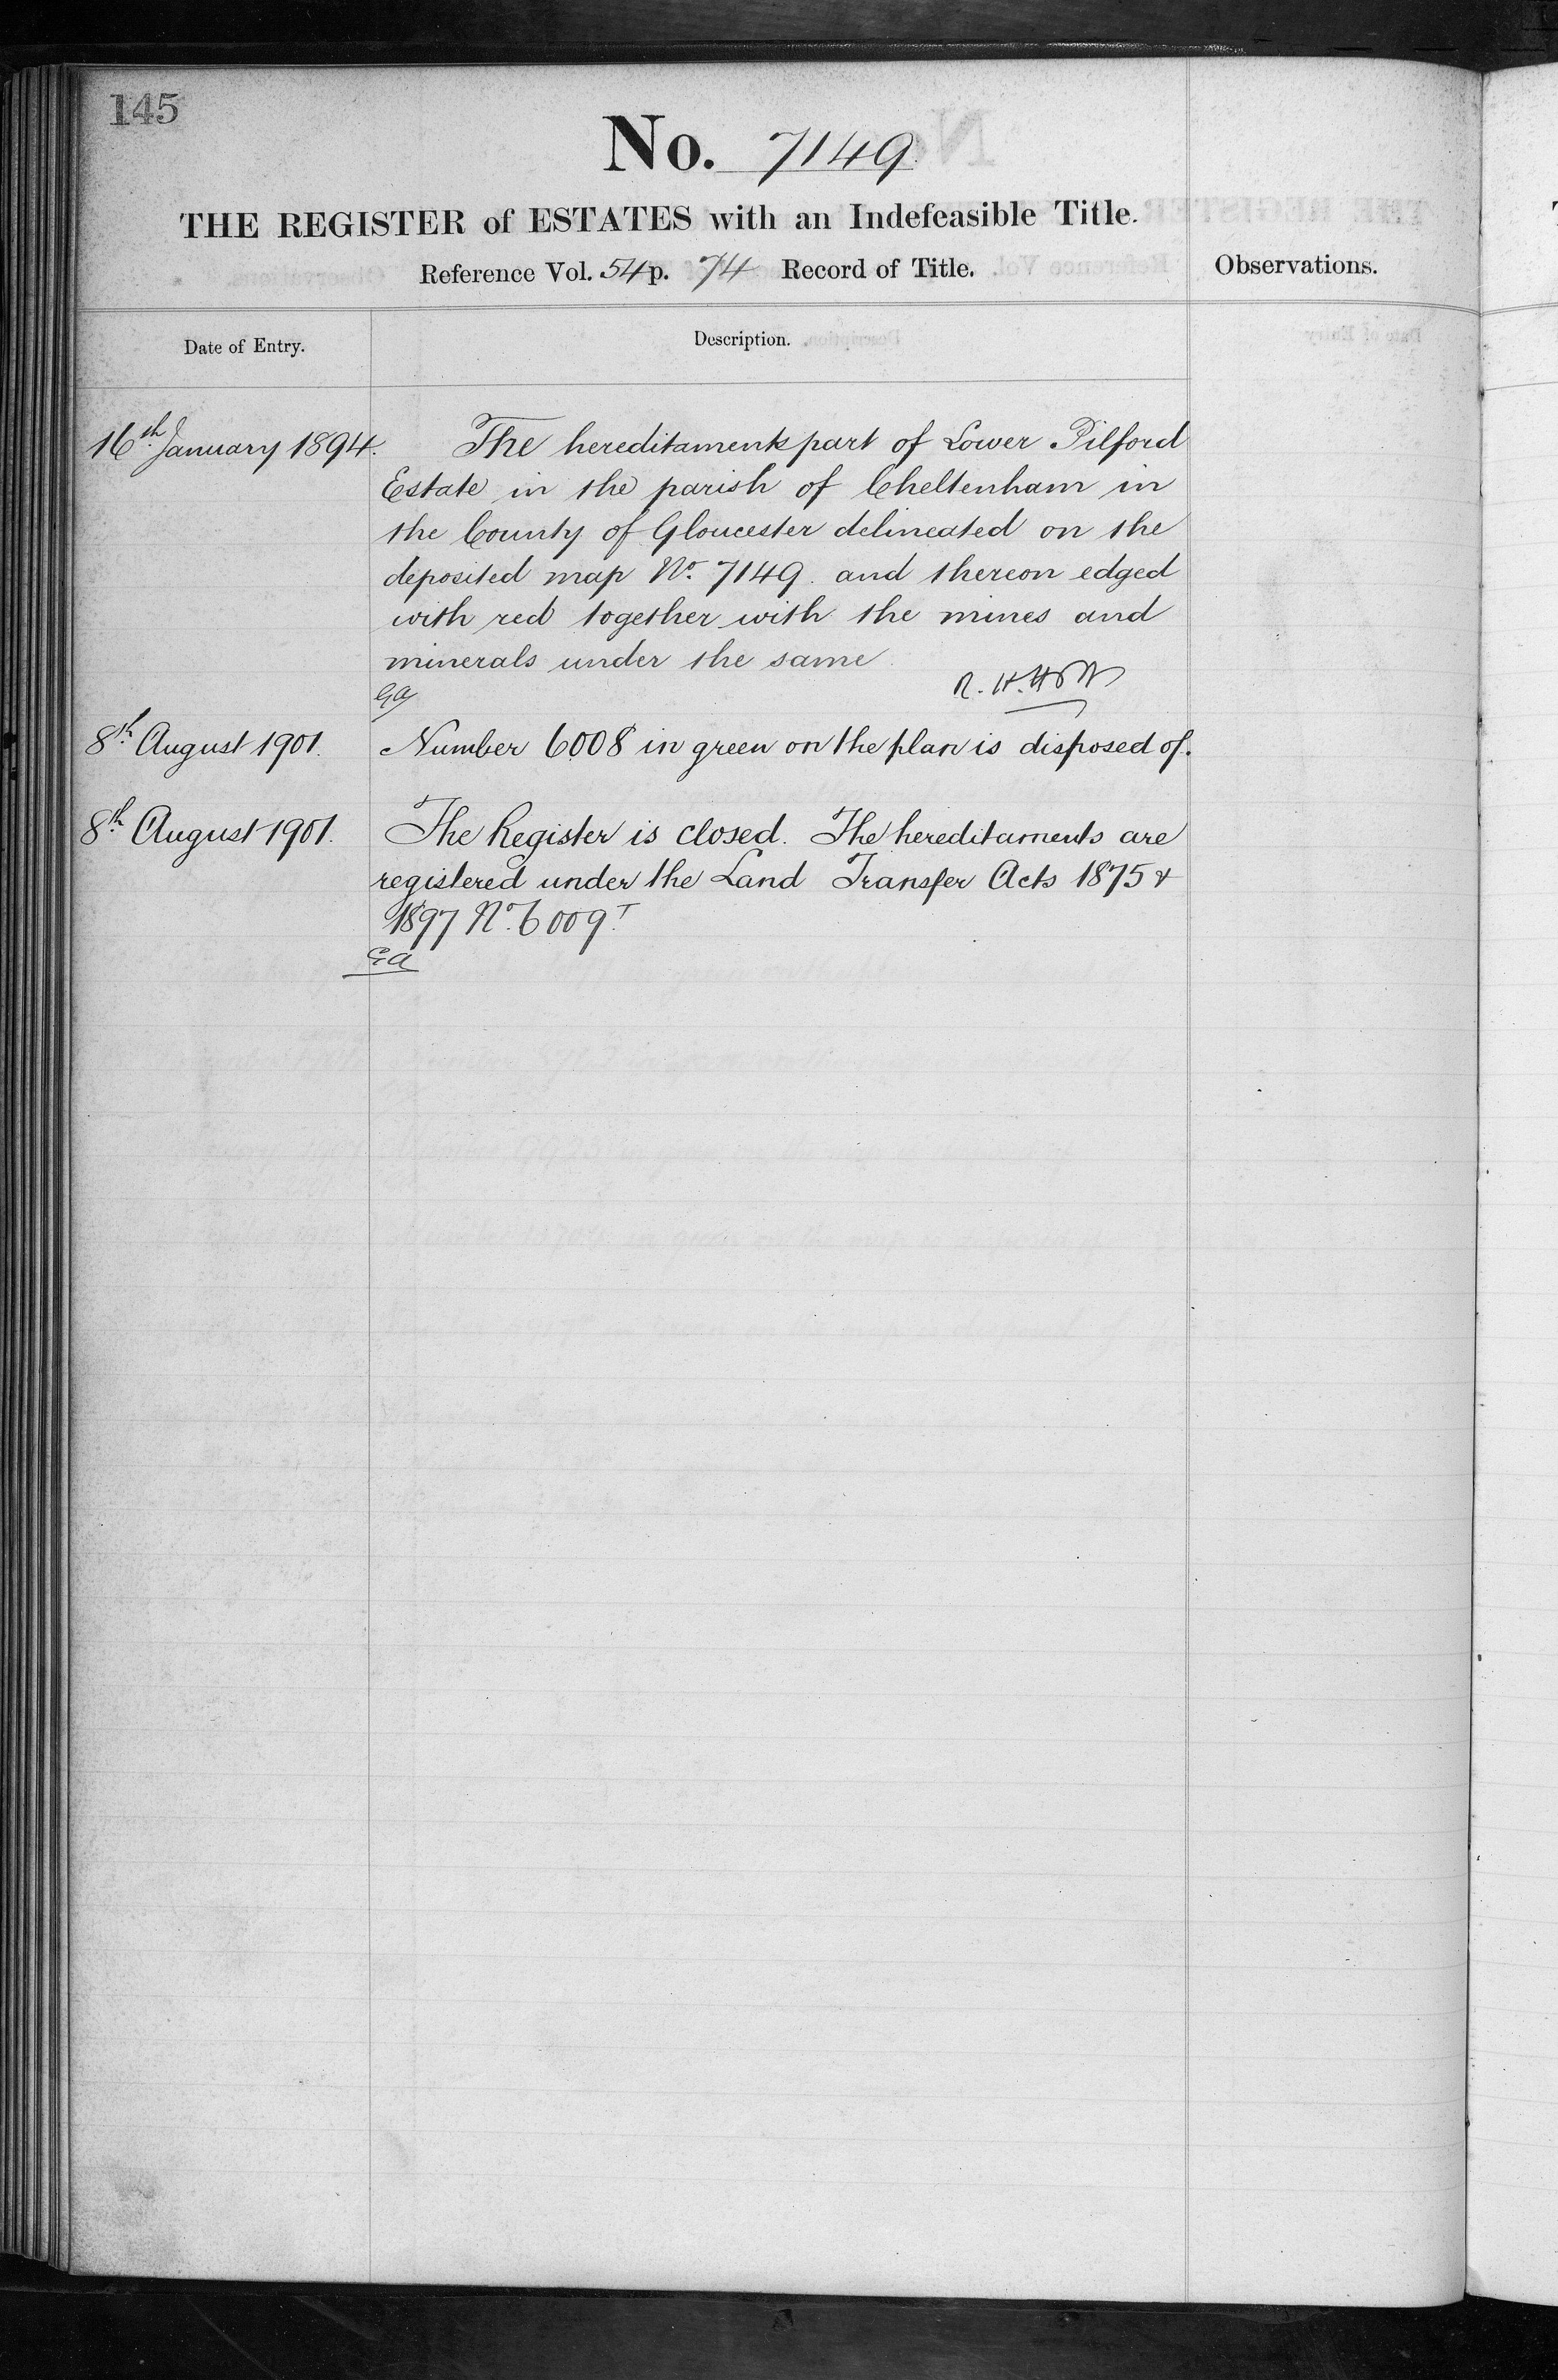 145
No. 7149.
THE REGISTER of ESTATES with an Indefeasible Title.
Reference Vol. 54 p. 74 Record of Title.
Observations.
Date of Entry.
Description.
16th January 1894.
The hereditaments part of Lower Pilford
Estate in the parish of Cheltenham in
the County of Gloucester delineated on the
deposited map No. 7149. and thereon edged
with red together with the mines and
minerals under the same
R. H. Holt
8th August 1901.
Number 6008 in green on the plan is disposed of.
8th August 1901.
The Register is closed. The hereditaments are
registered under the Land Transfer Acts 1875 &
1897 No. 6009T